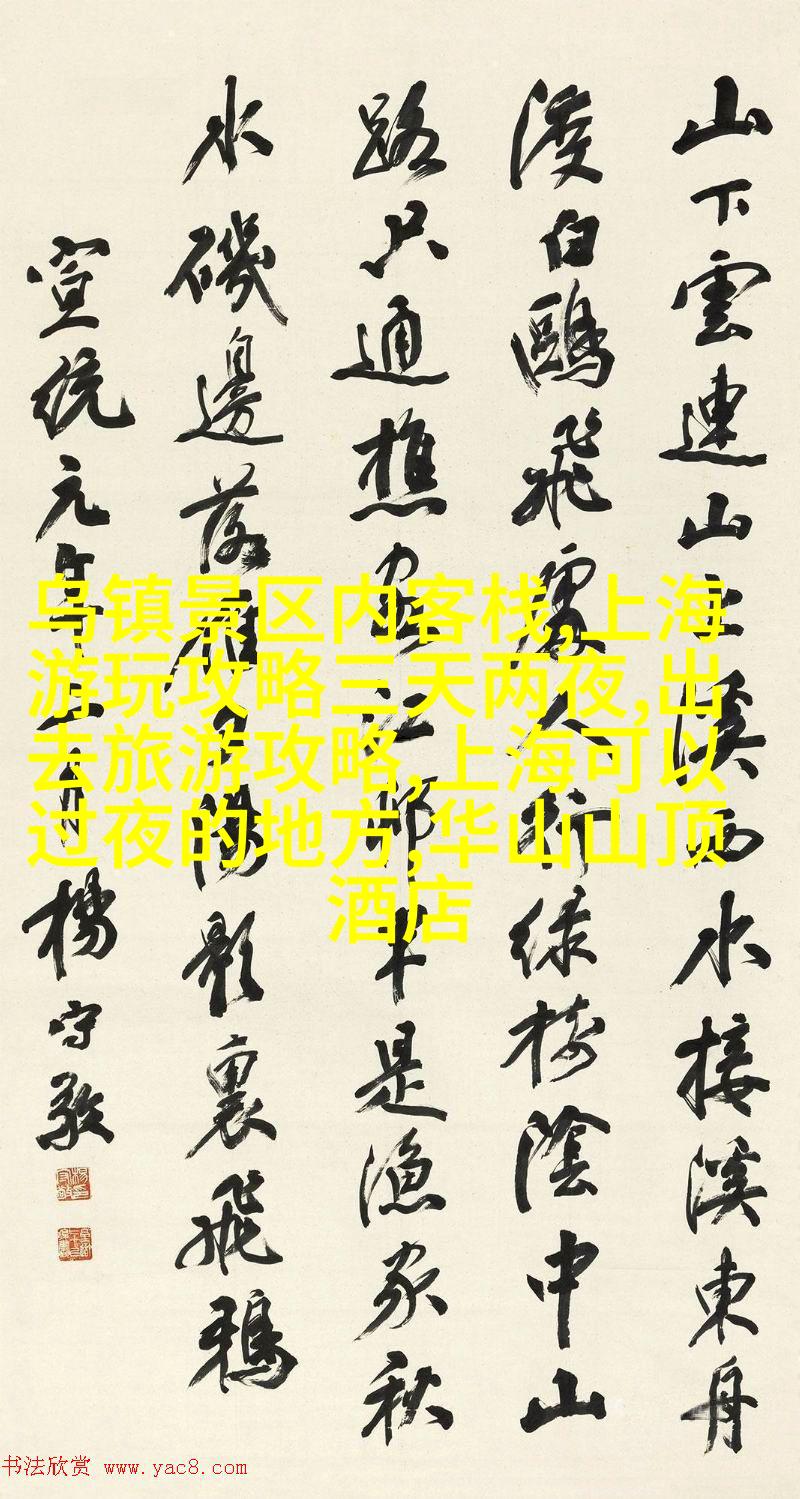 山下雲連山上溪西水接溪東舟
渡白鷗飛處人行綠樹陰中山
路只通樵客江邨半是漁家秋
水磯邊落雁夕陽影裏飛鴉
宣統元年月楊守敬
乌镇景区内客栈,上海
游玩攻略三天两夜,出
去旅游攻略,上海可以
过夜的地方,华山山顶
酒店
书法欣赏 www.yac8.com